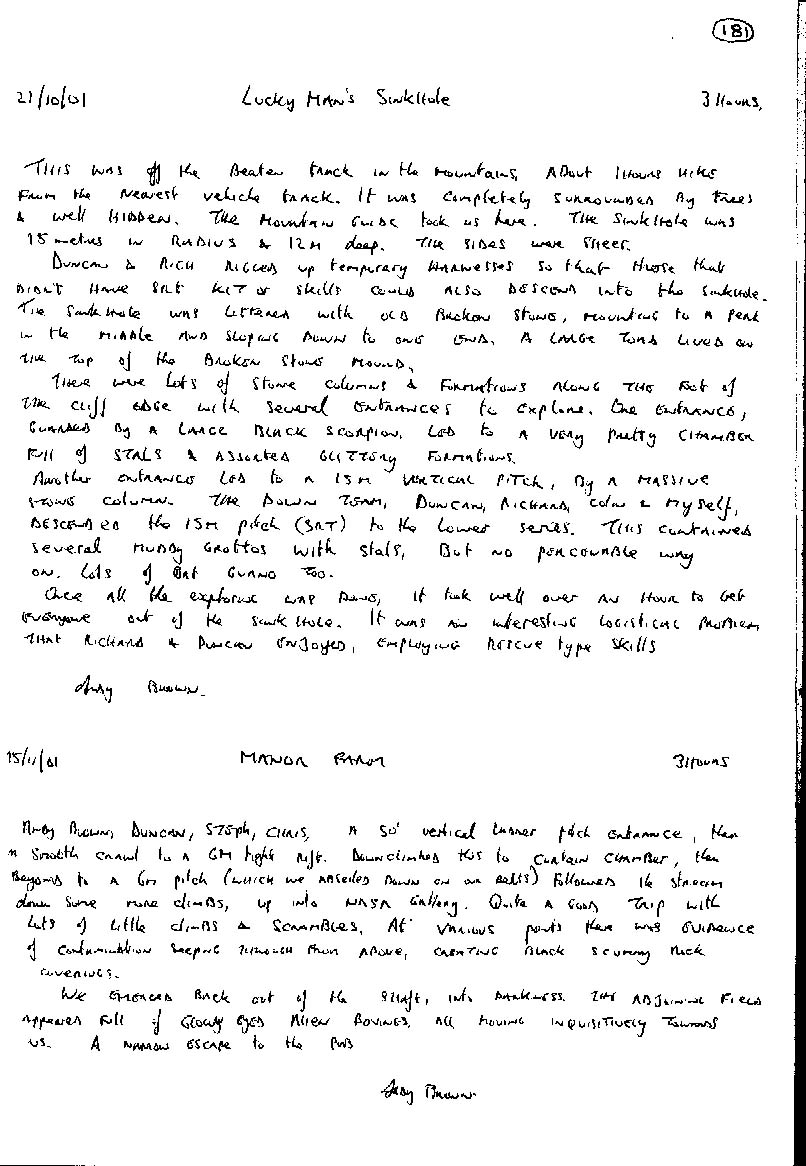 181
21/10/01 Lucky Man's Sinkhole 3 Hours.
This was off the beaten track in the mountains, about 1 hours hike
from the nearest vehicle track. It was completely surrounded by trees
& well hidden. The mountain guide took us here. The sinkhole was
15 metres in radius & 12m deep. The sides were sheer.
Duncan & Rich rigged up temporary harnesses so that those that
didn't have SRT kit or skills could also descend into the sinkhole.
The sinkhole was littered with old broken stone, mounting to a peak
in the middle and sloping down to one end. A large toad lived on
the top of the broken stone mound.
There were lots of stone columns & formations along the foot of
the cliff edge with several entrances to explore. One entrance,
guarded by a large black scorpion, led to a very pretty chamber
full of stals & assorted glittery formations.
Another entrance led to a 15m vertical pitch, by a massive
stone column. The down team, Duncan, Richard, Colin & myself,
descended the 15m pitch (SRT) to the lower series. This contained
several muddy grottos with stals, but no percievable way
on. Lots of bat guano too.
Once all the exploring was done, it took well over an hour to get
everyone out of the sinkhole. It was an interesting logistical problem
that Richard & Duncan enjoyed, employing rescue type skills
Andy Brown.
15/11/01 Manor Farm 3 Hours
Andy Brown, Duncan, Steph, Chris, A 50' vertical ladder pitch entrance, then
a smooth crawl to a 6m tight rift. Downclimbed this to Curtain Chamber, then
beyond to a 6m pitch (which we abseiled down on our belts) Followed the stream
down some more climbs, up into NASA Gallery. Quite a good trip with
lots of little climbs & scrambles. At various points there was evidence
of contamination seeping through from above, creating black scummy rock
coverings.
We emerged back out of the shaft, into darkness. The adjoining field
appeared full of glowy eyed alien bovines, all moving inquisitively towards
us. A narrow escape to the pub
Andy Brown